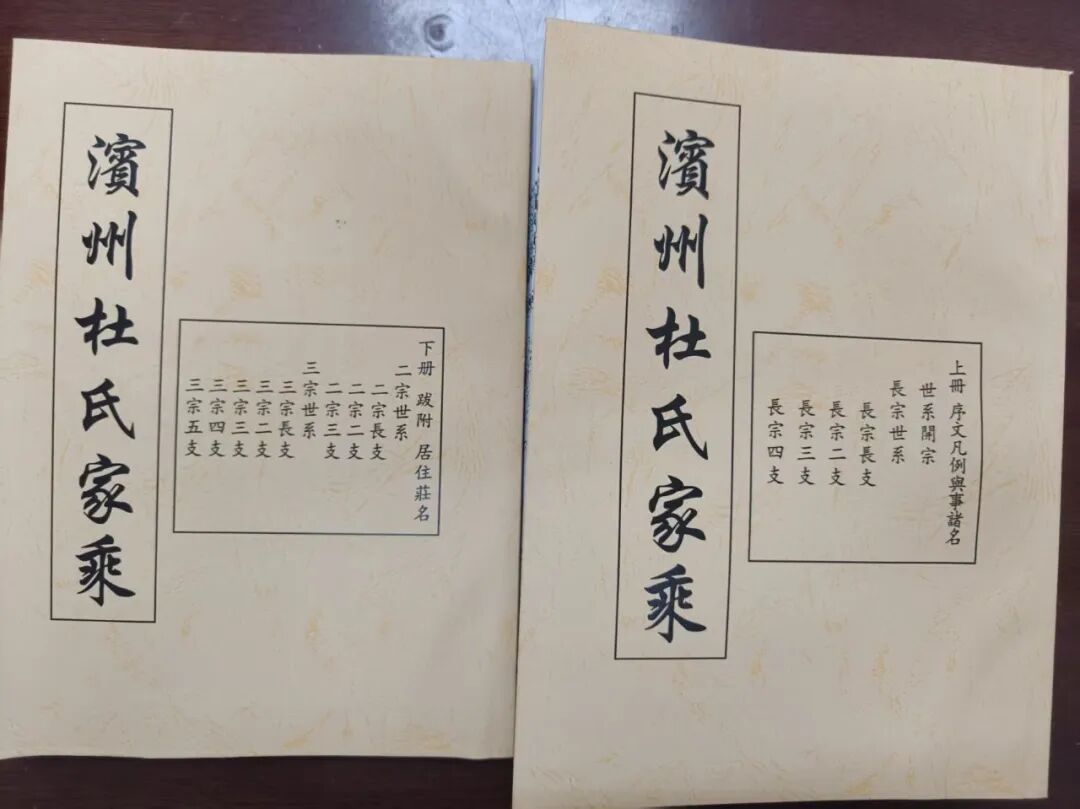 濱州杜氏家乘
上冊 序文凡例與事諸名
世系開宗
長宗世系
長宗長支
長宗二支
長宗三支
長宗四支
濱州杜氏家乘
下册 跋附 居住莊名
二宗世系
二宗長支
二宗二支
二宗三支
三宗世系
三宗長支
三宗二支
三宗三支
三宗四支
三宗五支